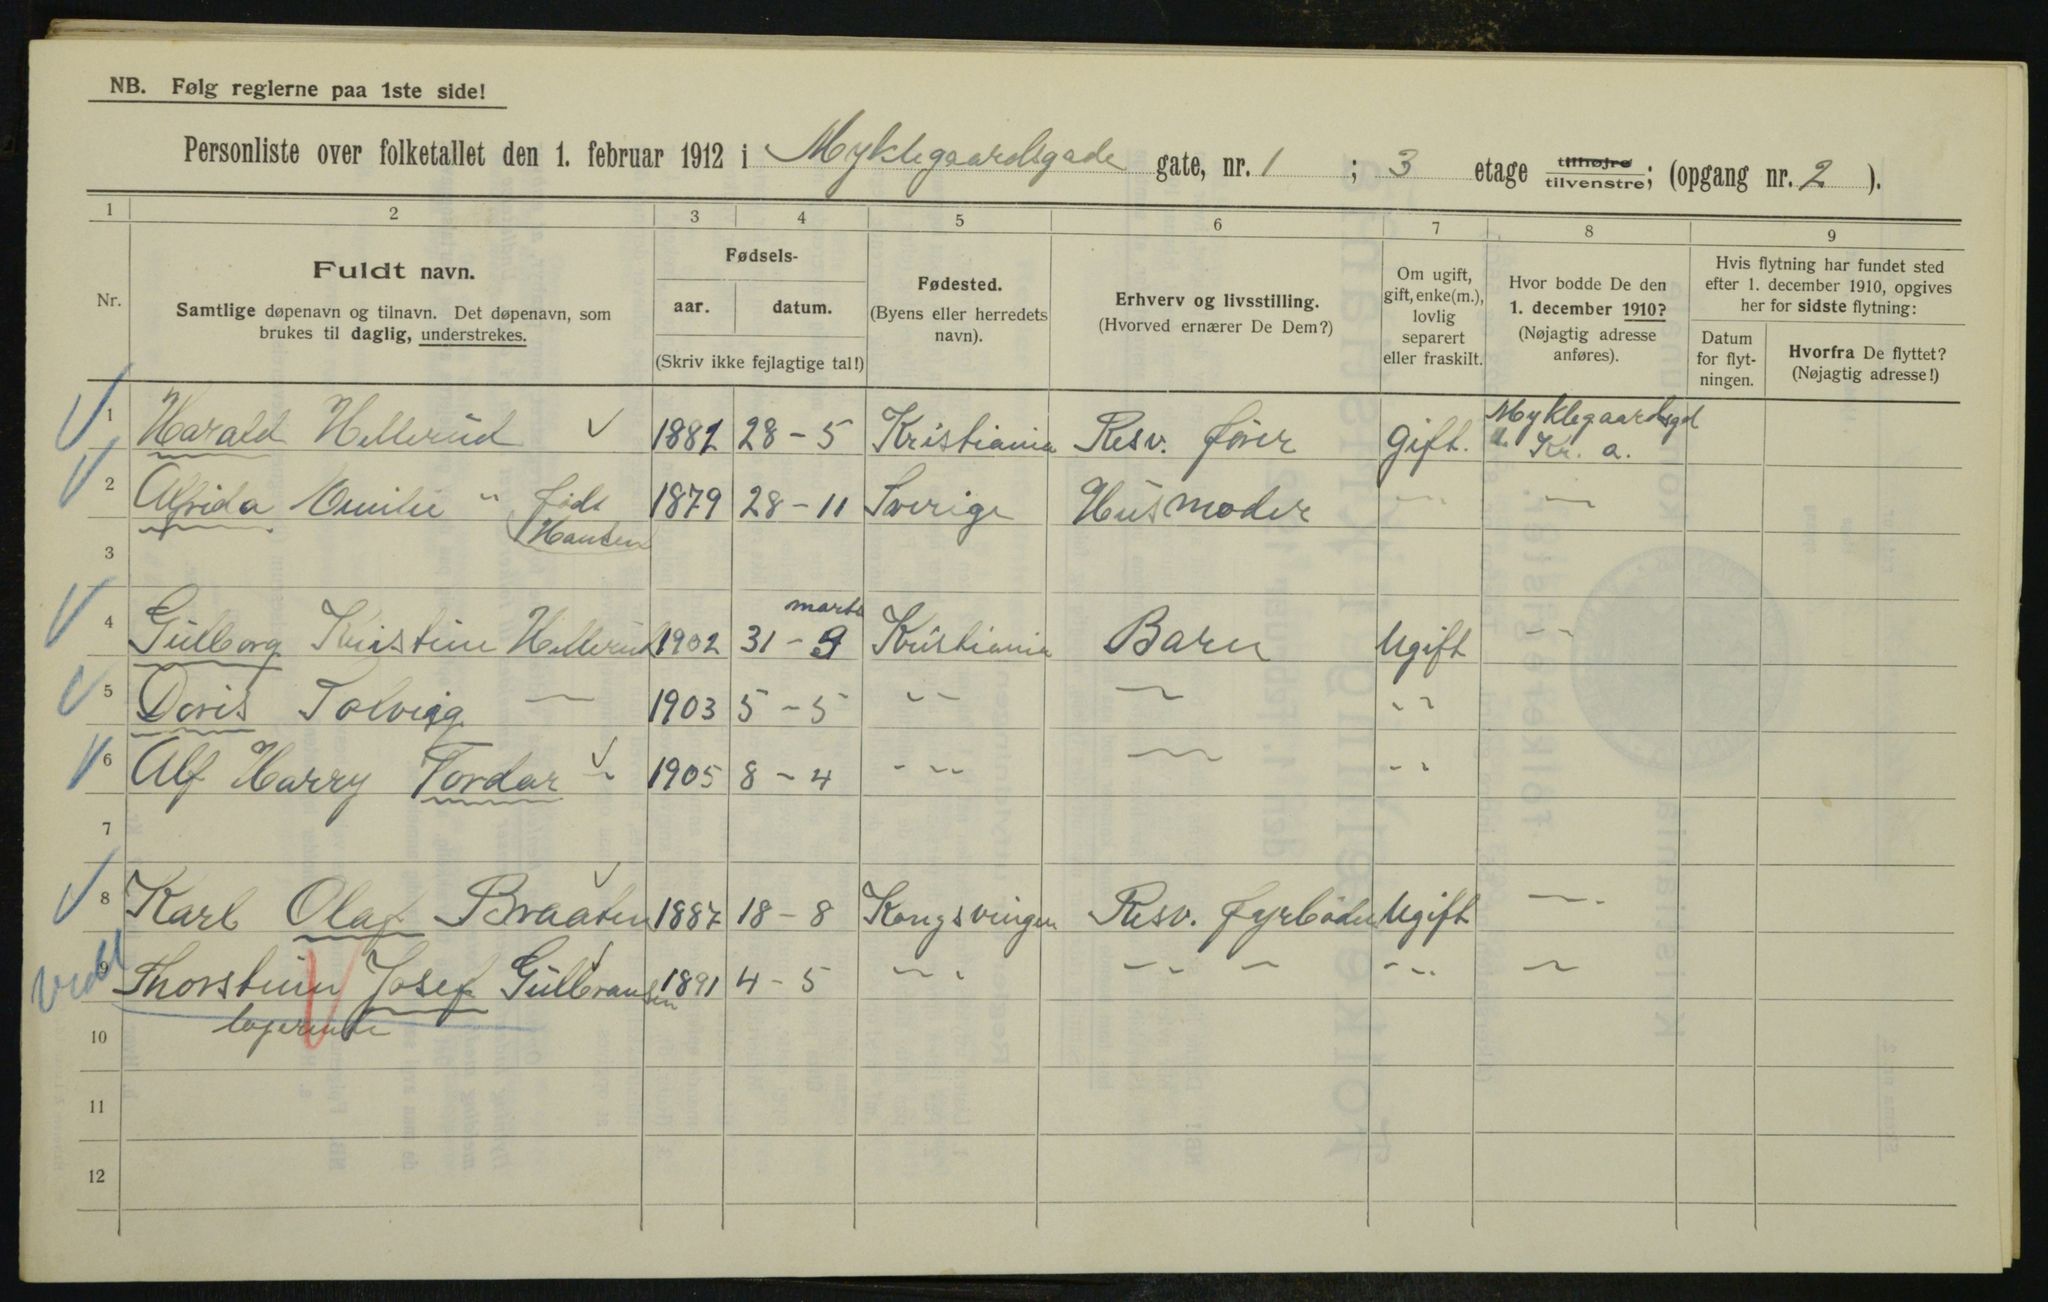 NB. Følg reglerne paa 1ste side!
Personliste over folketallet den 1. februar 1912 i Myklegaardsgade gate, nr. 1 ; 3 etage tilhøjre tilvenstre; (opgang nr. 2 ).
1 2 3 4 5 6 7 8 9
Nr.
Fuldt navn.
Samtlige døpenavn og tilnavn. Det døpenavn, som
brukes til daglig, understrekes.
Fødsels-
aar. datum.
(Skriv ikke fejlagtige tal!)
Fødested.
(Byens eller herredets
navn).
Erhverv og livsstilling.
(Hvorved ernærer De Dem?)
Om ugift,
gift, enke(m.),
lovlig
separert
eller fraskilt.
Hvor bodde De den
1. december 1910?
(Nøjagtig adresse
anføres).
Hvis flytning har fundet sted
efter 1. december 1910, opgives
her for sidste flytning:
Datum
for flyt-
ningen.
Hvorfra De flyttet?
(Nøjagtig adresse!)
1 Harald Hellerud 1882 28 - 5 Kristiania Resv. fører Gift. Myklegaardsgd
1. Kr. a.
2 Alfrida Emilie " født 1879 28 - 11 Sverige Husmoder — —
Hansen
3
4 Gulborg Kristine Hellerud 1902 31 - 3 Kristiania Barn Ugift - -
marts
5 Doris Solveig — 1903 5 - 5 - - — - -
6 Alf Harry Tordar — 1905 8 - 4 - - — - -
7
8 Karl Olaf Braaten 1887 18 - 8 Kongsvinger Resv. fyrbøder Ugift —
9 Thorstein Josef Gulbransen 1891 4 - 5 - - - - — - - —
10 logerende
11
12